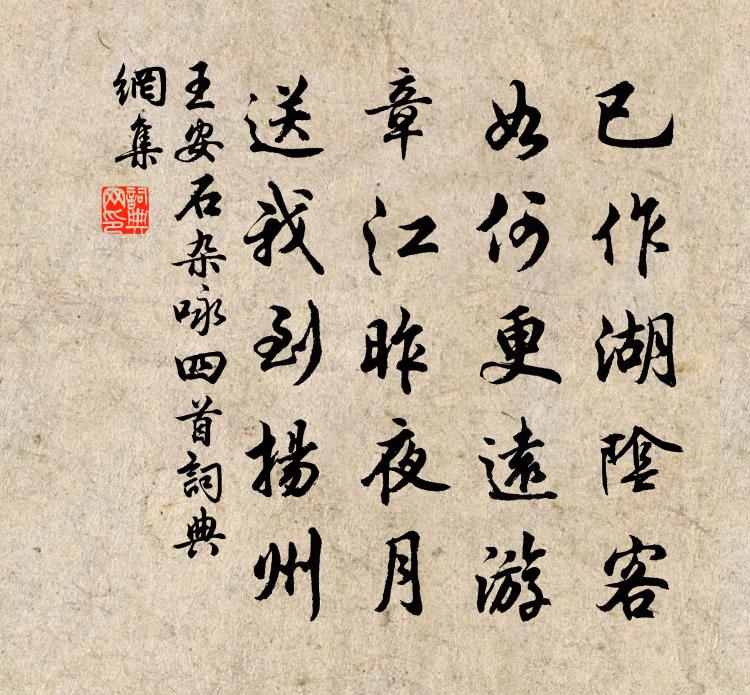 已作湖陰客
如何更遠游
章江昨夜月
送我到揚州
王安石杂咏四首詞典
網集
詞典
网印